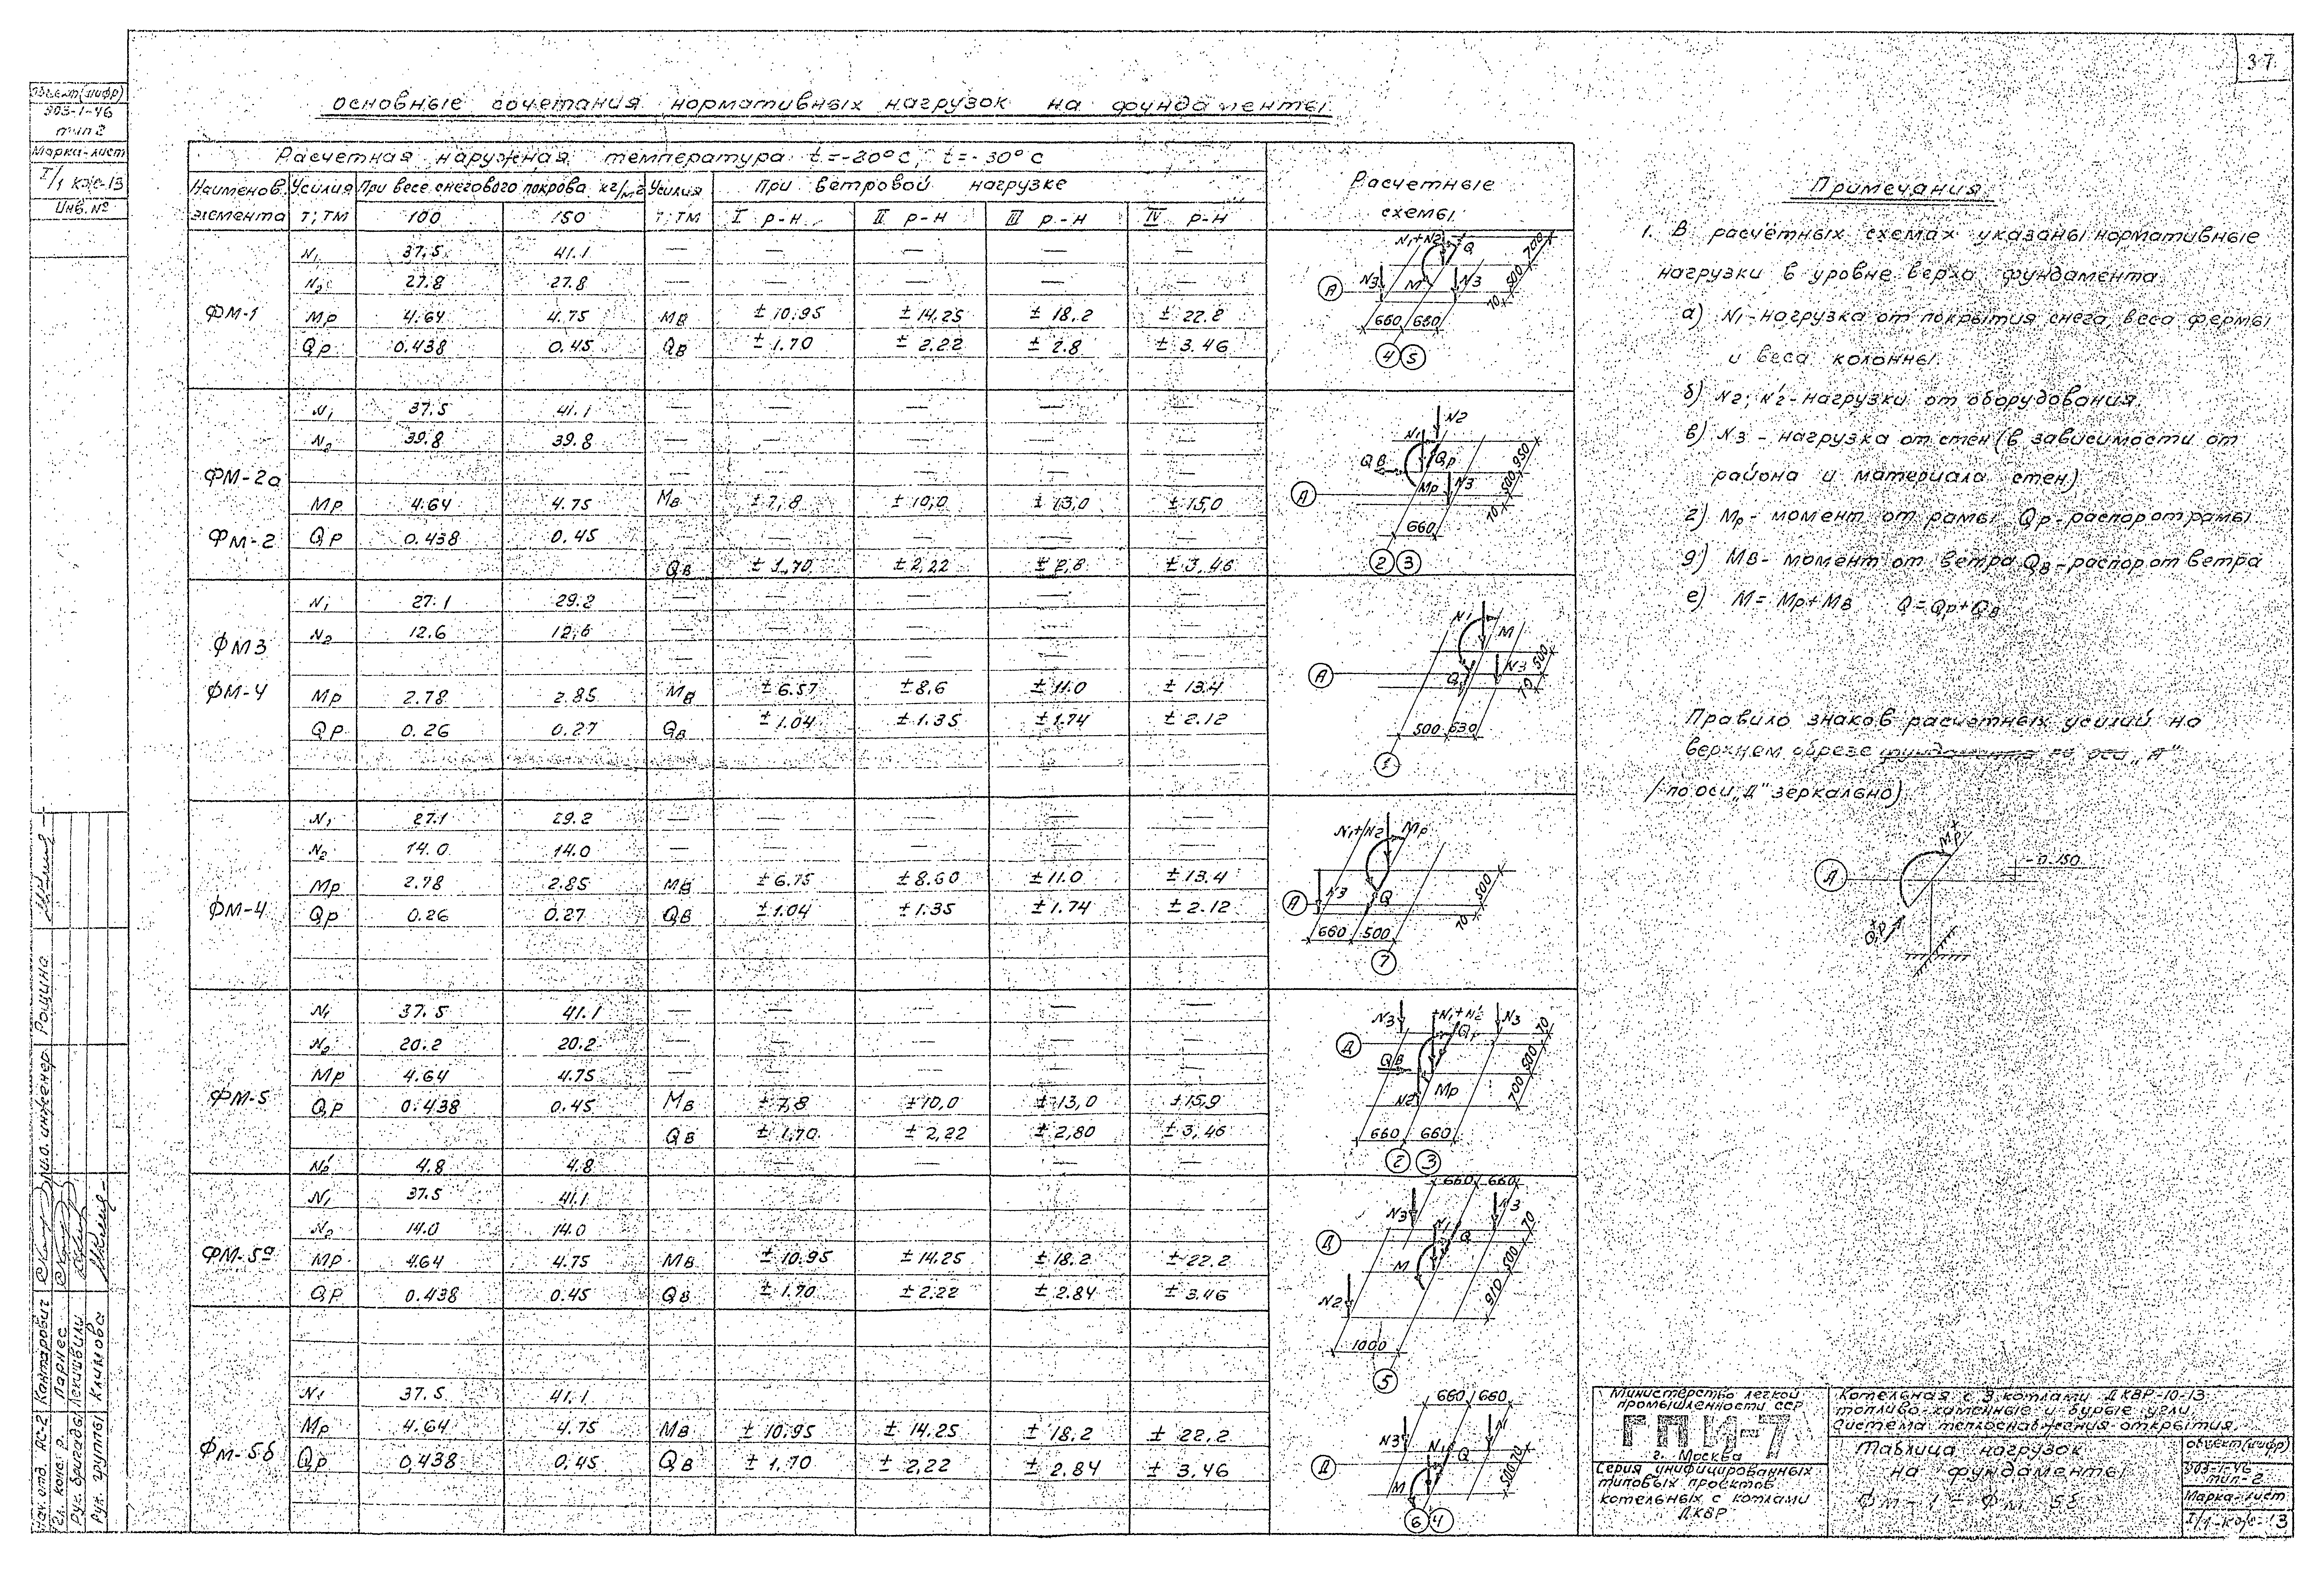 37
Объект (шифр)
903-1-46
тип 2
Марка-лист
I/1 кж-13
Инв. №
основные сочетания нормативных нагрузок на фундаменты
Расчетная наружная температура t=-20°C; t=-30°C
Наименов. элемента
Усилия т; тм
При весе снегового покрова кг/м2
Усилия т; тм
При ветровой нагрузке
Расчетные схемы
100 150 I р-н II р-н III р-н IV р-н
ФМ-1
N1 37.5 41.1 — — — — —
N2 27.8 27.8 — — — — —
Mp 4.64 4.75 Mв ±10.95 ±14.25 ±18.2 ±22.2
Qp 0.438 0.45 Qв ±1.70 ±2.22 ±2.8 ±3.46
N1+N2 Q
N3 M N3
А
660 660
70 500 700
4 5
ФМ-2а
ФМ-2
N1 37.5 41.1 — — — — —
N2 39.8 39.8 — — — — —
— — — — —
Mp 4.64 4.75 Mв ±7,8 ±10,0 ±13,0 ±15,0
Qp 0.438 0.45
Qв ±1,70 ±2,22 ±2,8 ±3,46
N2
N1
Qв Qp
Mp N3
А
660
70 500 950
2 3
ФМ3
ФМ-4
N1 27.1 29.2 — — — — —
N2 12.6 12.6 — — — — —
— — — — —
Mp 2.78 2.85 Mв ±6.57 ±8.6 ±11.0 ±13.4
Qp 0.26 0.27 Qв ±1.04 ±1.35 ±1.74 ±2.12
N1 M
N3
Q
А
500 630
70 500
1
ФМ-4
N1 27.1 29.2 — — — — —
N2 14.0 14.0 — — — — —
Mp 2.78 2.85 Mв ±6.75 ±8.60 ±11.0 ±13.4
Qp 0.26 0.27 Qв ±1.04 ±1.35 ±1.74 ±2.12
N1+N2 Mp
N3 Q
А
660 500
70 500
7
ФМ-5
N1 37.5 41.1 — — — — —
N2 20.2 20.2 — — — — —
Mp 4.64 4.75 — — — — —
Qp 0.438 0.45 Mв ±7,8 ±10,0 ±13,0 ±15,9
Qв ±1,70 ±2,22 ±2,80 ±3,46
N2' 4.8 4.8 — — — —
N3 N1+N2' N3
Д
Qв
N2 Mp
660 660
700 500 70
2 3
ФМ-5а
N1 37.5 41.1
N2 14.0 14.0
Mp 4.64 4.75 Mв ±10.95 ±14.25 ±18.2 ±22.2
Qp 0.438 0.45 Qв ±1.70 ±2.22 ±2.84 ±3.46
660 660
N3 N1 N3
Д
Q
M
N2
910 500 70
1000
5
ФМ-5б
N1 37.5 41.1
Mp 4.64 4.75 Mв ±10.95 ±14.25 ±18.2 ±22.2
Qp 0,438 0,45 Qв ±1.70 ±2,22 ±2,84 ±3.46
660 660
N3 N1 Q N
Д
M
500 70
6 4
Примечания
1. В расчётных схемах указаны нормативные
нагрузки в уровне верха фундамента.
а) N1-нагрузка от покрытия снега, веса фермы
и веса колонны.
б) N2; N'2-нагрузки от оборудования.
в) N3 - нагрузка от стен (в зависимости от
района и материала стен)
г) Mp- момент от рамы Qp-распор от рамы.
д) Mв- момент от ветра Qв-распор от ветра
е) M=Mp+Mв Q=Qp+Qв
Правило знаков расчетных усилий на
верхнем обрезе фундамента по оси „А"
/по оси „Д" зеркально)
+Mp
А
-0.150
+Qp
Министерство легкой
промышленности ссср
ГПИ-7
г. Москва
Серия унифицированных
типовых проектов
котельных с котлами
ДКВР
Котельная с 3 котлами ДКВР-10-13.
топливо-каменные и бурые угли.
Система теплоснабжения открытия.
Таблица нагрузок
на фундаменты
ФМ-1 ÷ ФМ 5б
Объект (шифр)
903-1-46
тип-2
Марка-лист
I/1-кж-13
Нач. отд. АС-2 Канторович
Гл. конс. р. Ларнес
Рук. бригады Лекишвили
Рук. группы Климова
и.о. инженер Рощина